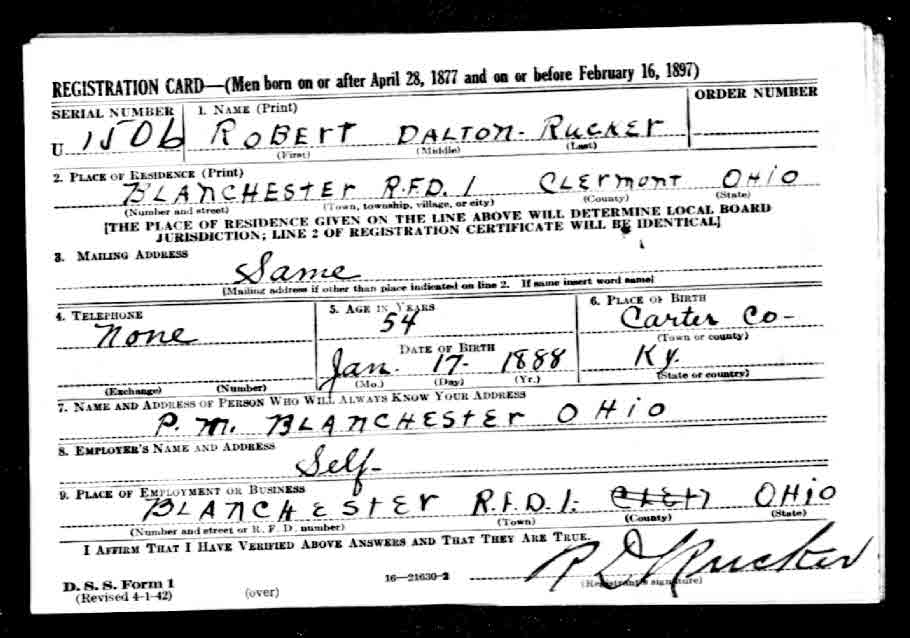 REGISTRATION CARD—(Men born on or after April 28, 1877 and on or before February 16, 1897)
SERIAL NUMBER 1. NAME (Print) ORDER NUMBER
U 1506 ROBERT DALTON- RUCKER
(First) (Middle) (Last)
2. PLACE OF RESIDENCE (Print)
BLANCHESTER R.F.D. 1 CLERMONT OHIO
(Number and street) (Town, township, village, or city) (County) (State)
[THE PLACE OF RESIDENCE GIVEN ON THE LINE ABOVE WILL DETERMINE LOCAL BOARD
JURISDICTION; LINE 2 OF REGISTRATION CERTIFICATE WILL BE IDENTICAL]
3. MAILING ADDRESS
Same
[Mailing address if other than place indicated on line 2. If same insert word same]
4. TELEPHONE 5. AGE IN YEARS 6. PLACE OF BIRTH
None 54 Carter Co-
DATE OF BIRTH (Town or county)
Jan. 17- 1888 Ky.
(Exchange) (Number) (Mo.) (Day) (Yr.) (State or country)
7. NAME AND ADDRESS OF PERSON WHO WILL ALWAYS KNOW YOUR ADDRESS
P. M. BLANCHESTER OHIO
8. EMPLOYER'S NAME AND ADDRESS
Self-
9. PLACE OF EMPLOYMENT OR BUSINESS
BLANCHESTER R.F.D. 1. OHIO
(Number and street or R. F. D. number) (Town) (County) (State)
I AFFIRM THAT I HAVE VERIFIED ABOVE ANSWERS AND THAT THEY ARE TRUE.
R D Rucker
D. S. S. Form 1 16—21630-2 (Registrant's signature)
(Revised 4-1-42) (over)